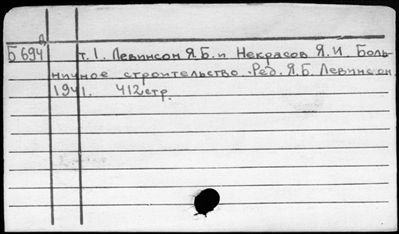 Б 694 т. 1. Левинсон Я.Б. и Некрасов Я.И. Боль-
ничное строительство. Ред. Я.Б. Левинсон.
1941. 412стр.